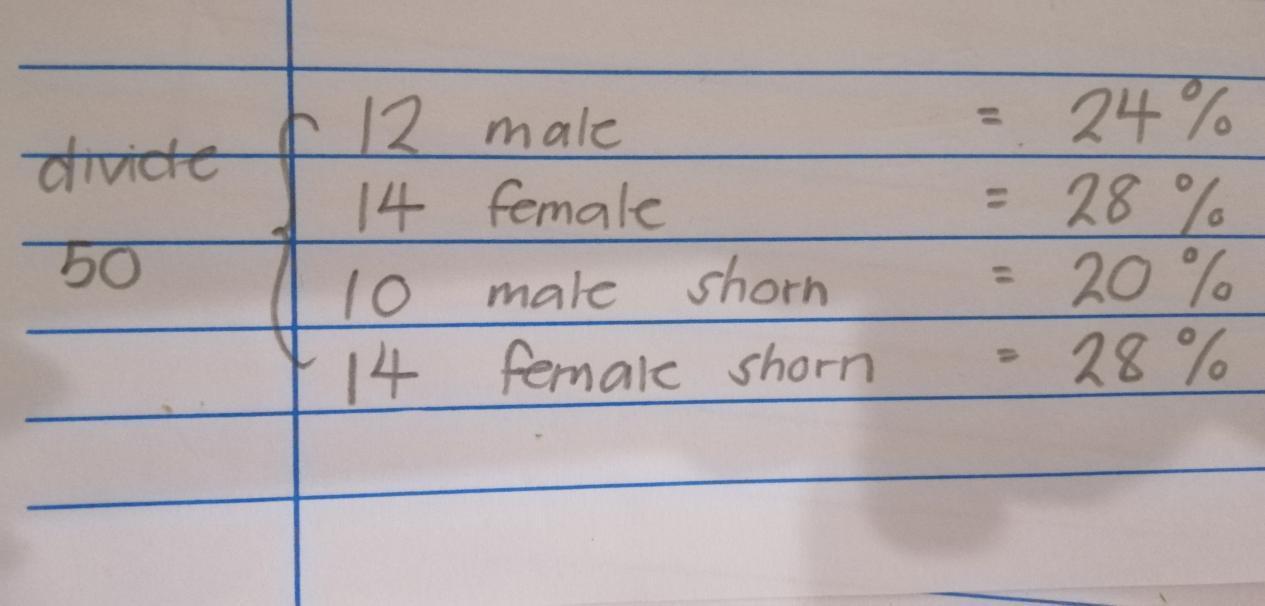 12 male = 24%
divide
14 female = 28%
50
10 male shorn = 20%
14 female shorn = 28%